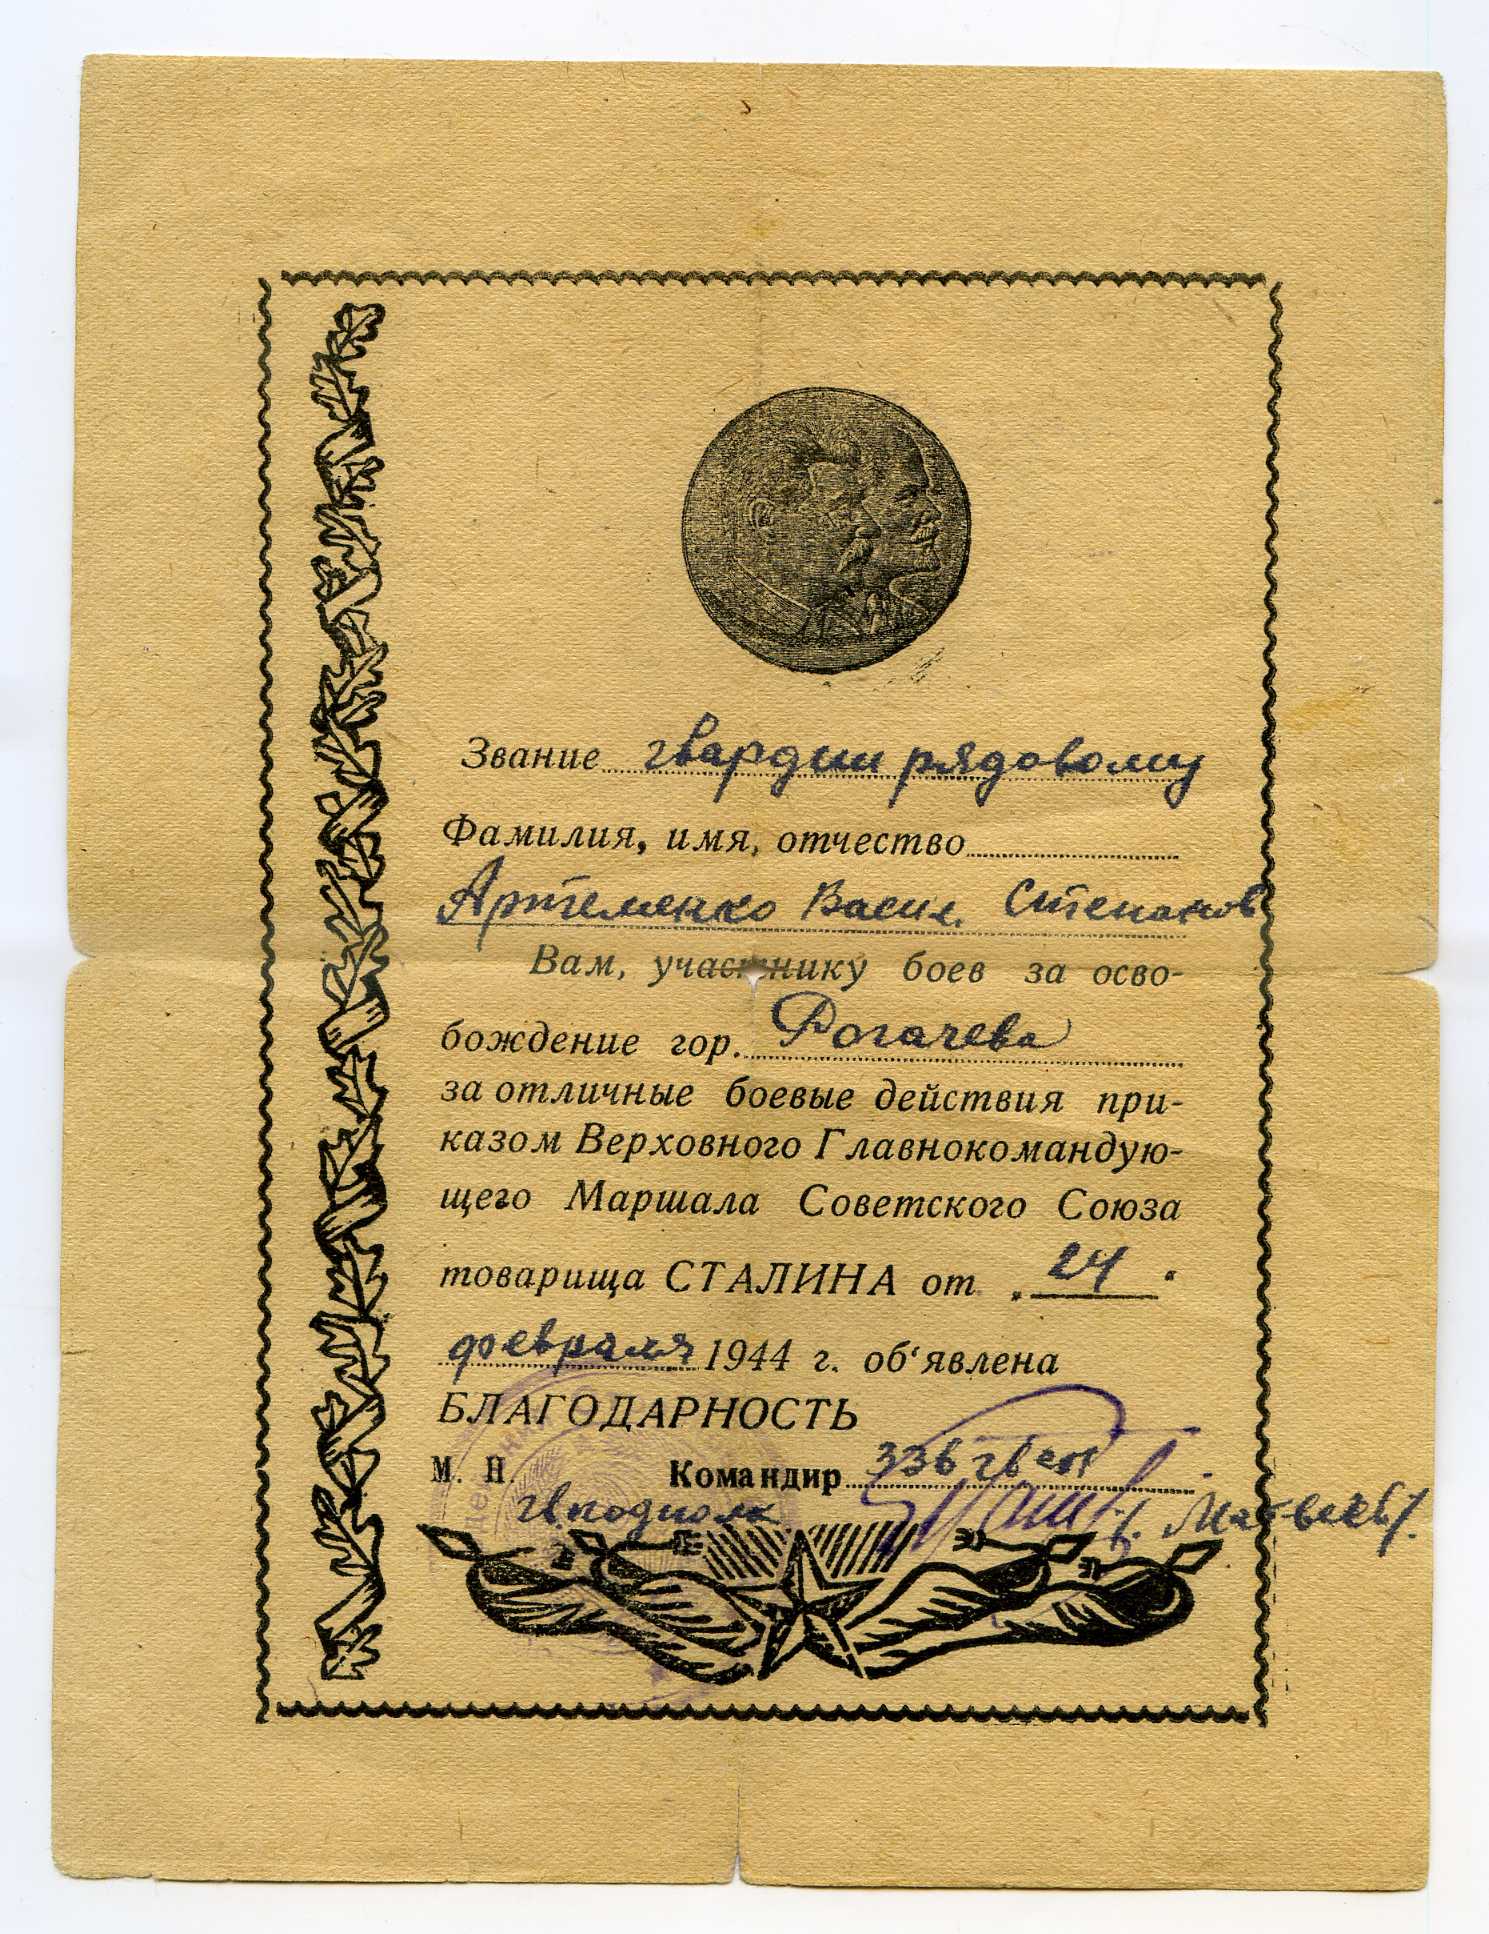 Звание гвардии рядовому
Фамилия, имя, отчество
Артеменко Васил. Степанов
Вам, участнику боев за осво-
бождение гор. Рогачева
за отличные боевые действия при-
казом Верховного Главнокомандую-
щего Маршала Советского Союза
товарища СТАЛИНА от „24“
февраля 1944 г. об‘явлена
БЛАГОДАРНОСТЬ
М. П. Командир 336 гв сп
гв подполк. Матвеев